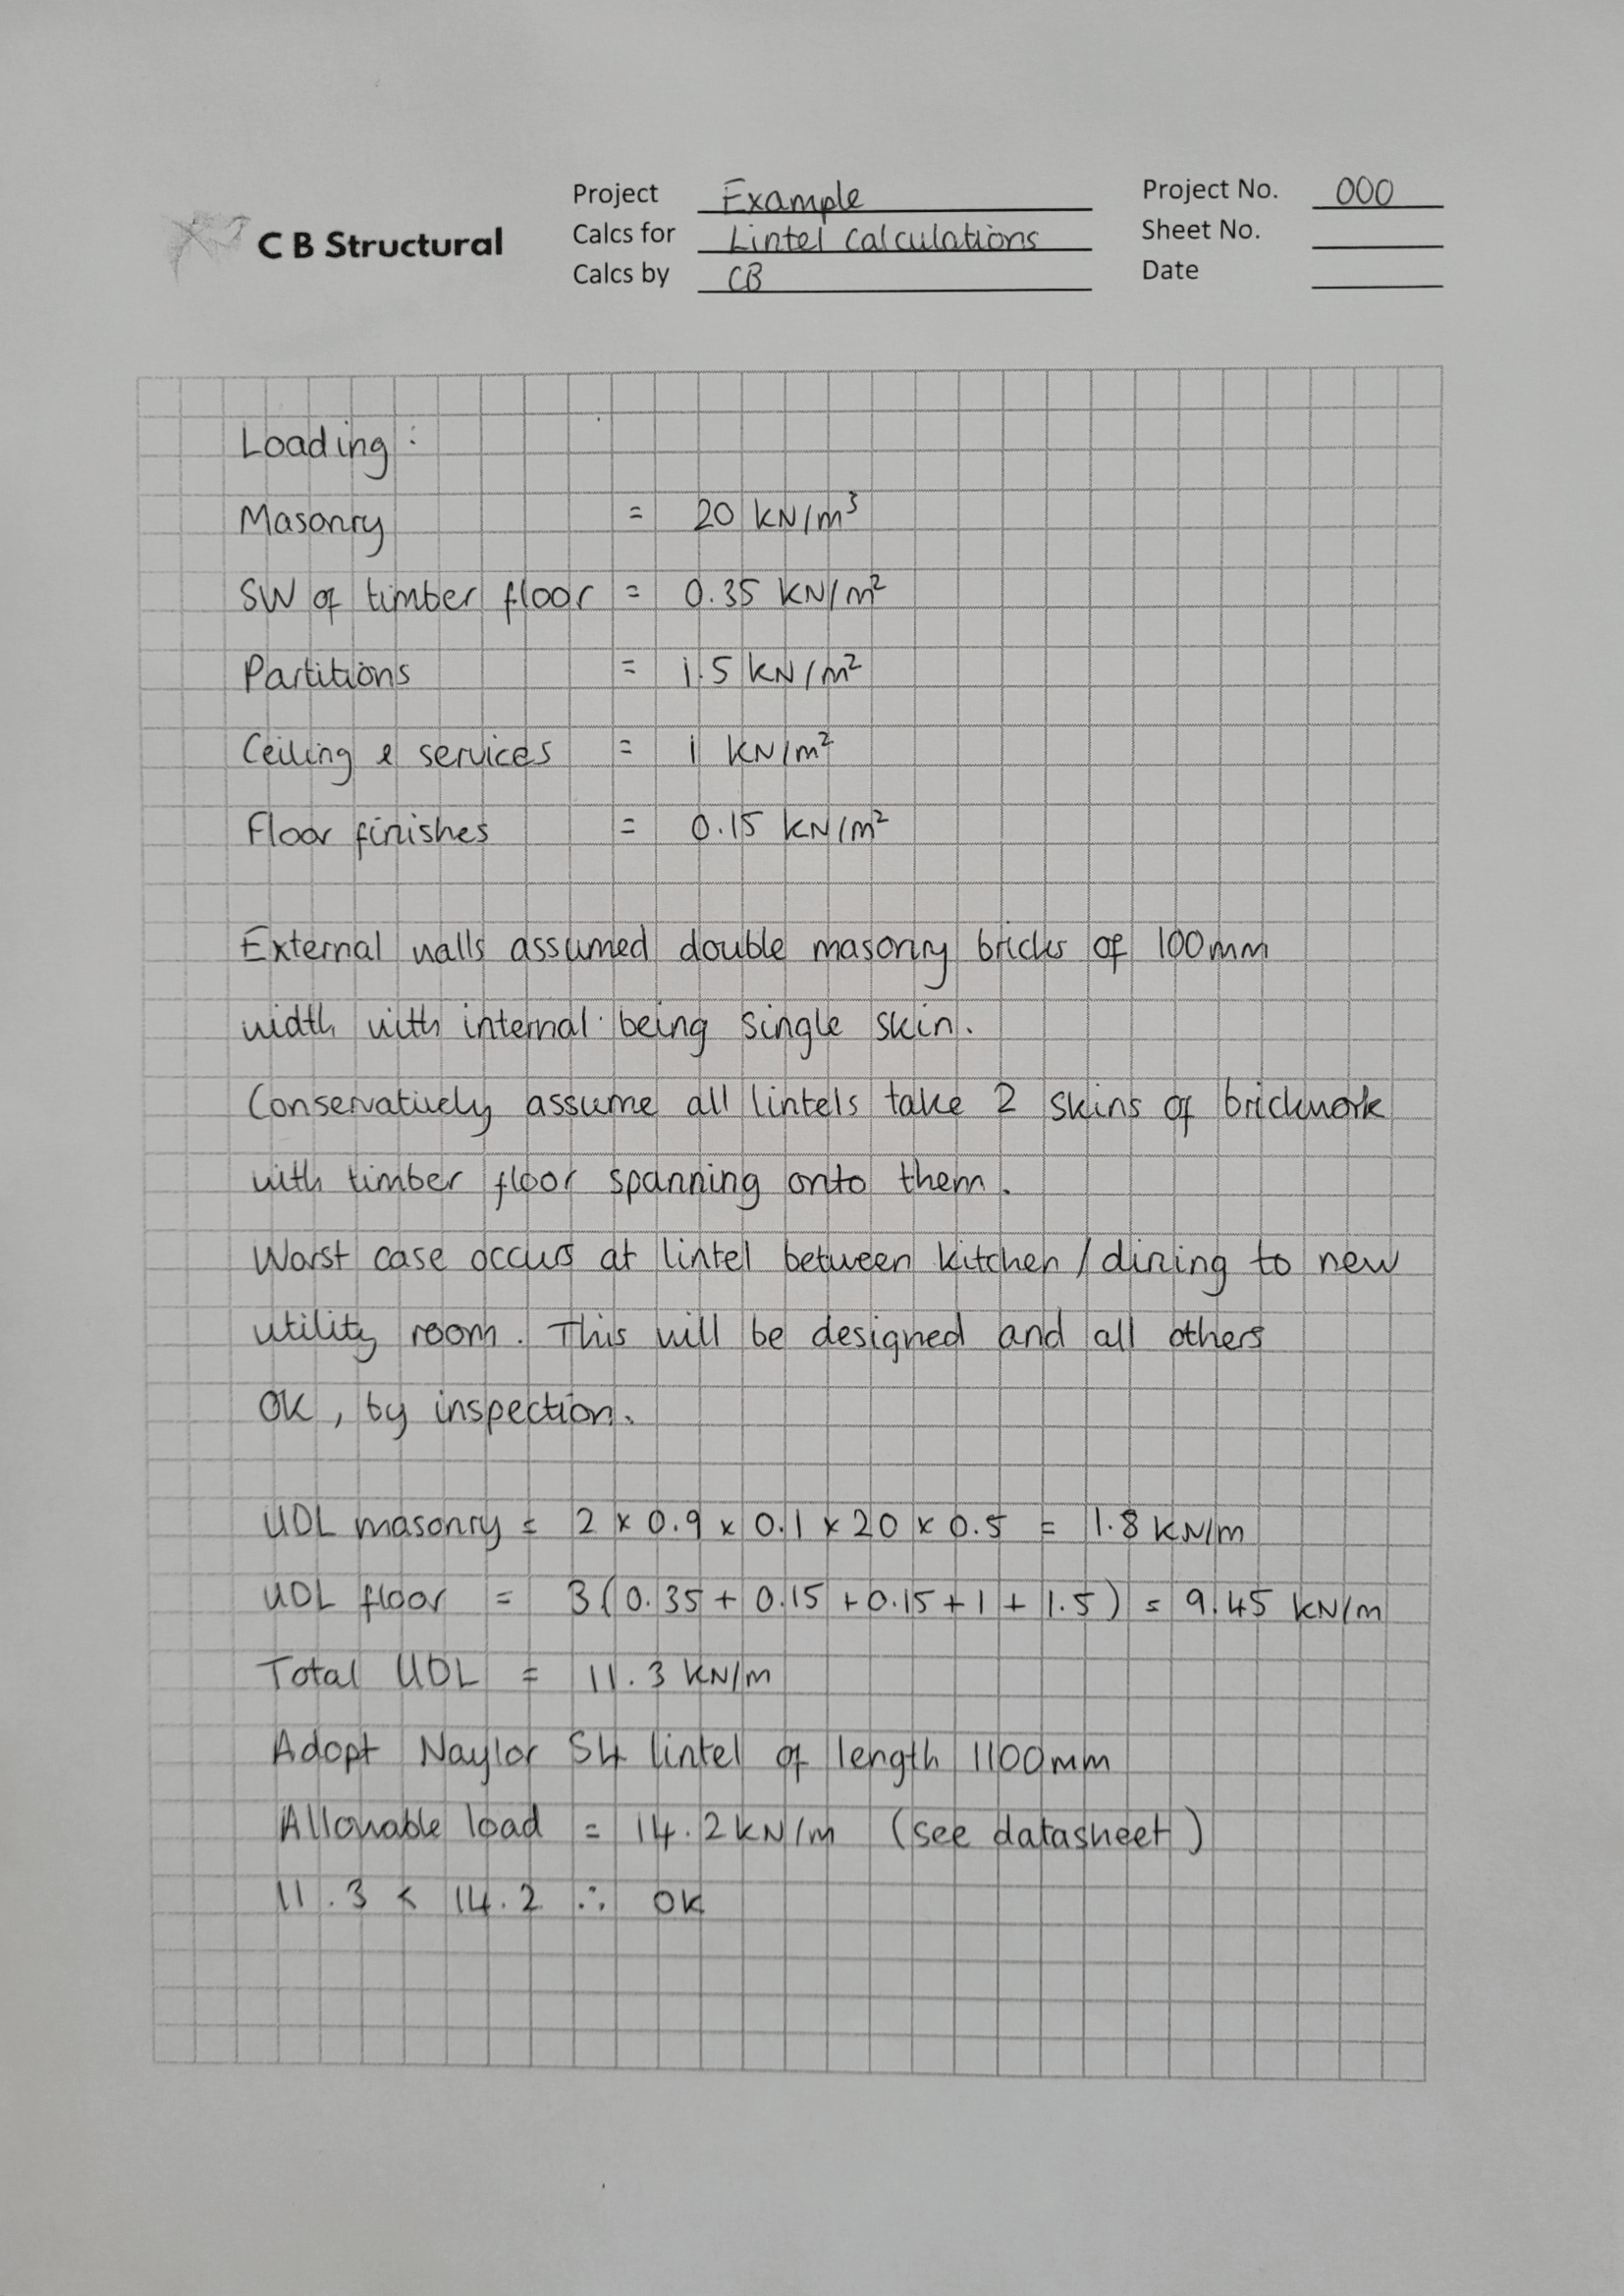 C B Structural
Project Example
Calcs for Lintel Calculations
Calcs by CB
Project No. 000
Sheet No.
Date
Loading:
Masonry = 20 kN/m³
SW of timber floor = 0.35 kN/m²
Partitions = 1.5 kN/m²
Ceiling & services = 1 kN/m²
Floor finishes = 0.15 kN/m²
External walls assumed double masonry bricks of 100mm
width with internal being single skin.
Conservatively assume all lintels take 2 skins of brickwork
with timber floor spanning onto them.
Worst case occurs at lintel between kitchen/dining to new
utility room. This will be designed and all others
OK, by inspection.
UDL masonry = 2 x 0.9 x 0.1 x 20 x 0.5 = 1.8 kN/m
UDL floor = 3(0.35 + 0.15 + 0.15 + 1 + 1.5) = 9.45 kN/m
Total UDL = 11.3 kN/m
Adopt Naylor S4 lintel of length 1100mm
Allowable load = 14.2 kN/m (see datasheet)
11.3 < 14.2 ∴ OK